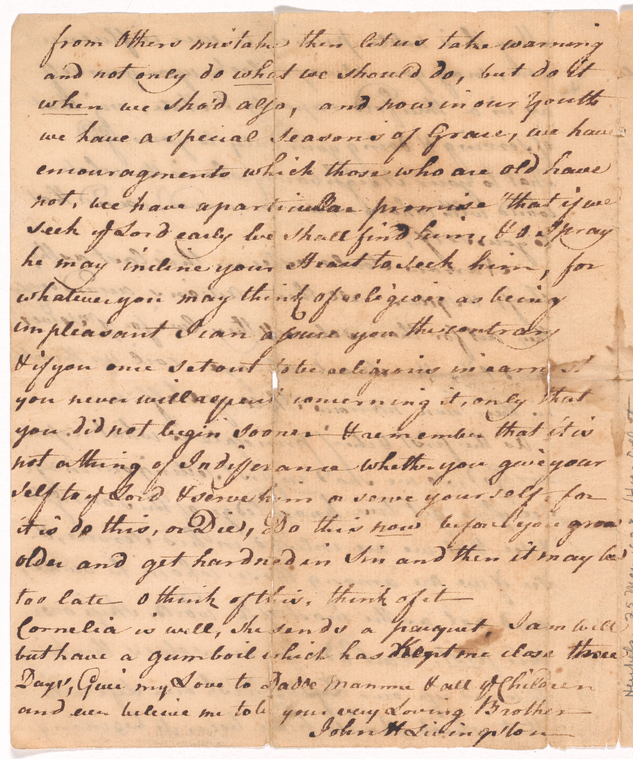 from Others mistake then let us take warning
and not only do what we should do, but do it
when we shod also, and now in our Youth
we have a special season of Grace, we have
encouragments which those who are old have
not, we have a particular promise "that if we
seek ye Lord early we shall find him, & O I pray
he may incline your Heart to seek him, for
whatever you may think of religion as being
unpleasant I can assure you the contrary
& if you once set out to be religious in earnest
you never will repent concerning it, only that
you did not begin sooner & remember that it is
not a thing of Indifferance whether you give your
self to ye Lord & serve him or serve your self, for
it is do this, or Die, Do this now before you grow
older and get hardned in Sin and then it may be
too late O think of this, think of it
Cornelia is well, she sends a pacquet, I am well
but have a gumboil which has Kept me close three
Days, Give my Love to Dadde Mamme & all ye Children
and ever believe me to be your very Loving Brother
John H Livingston